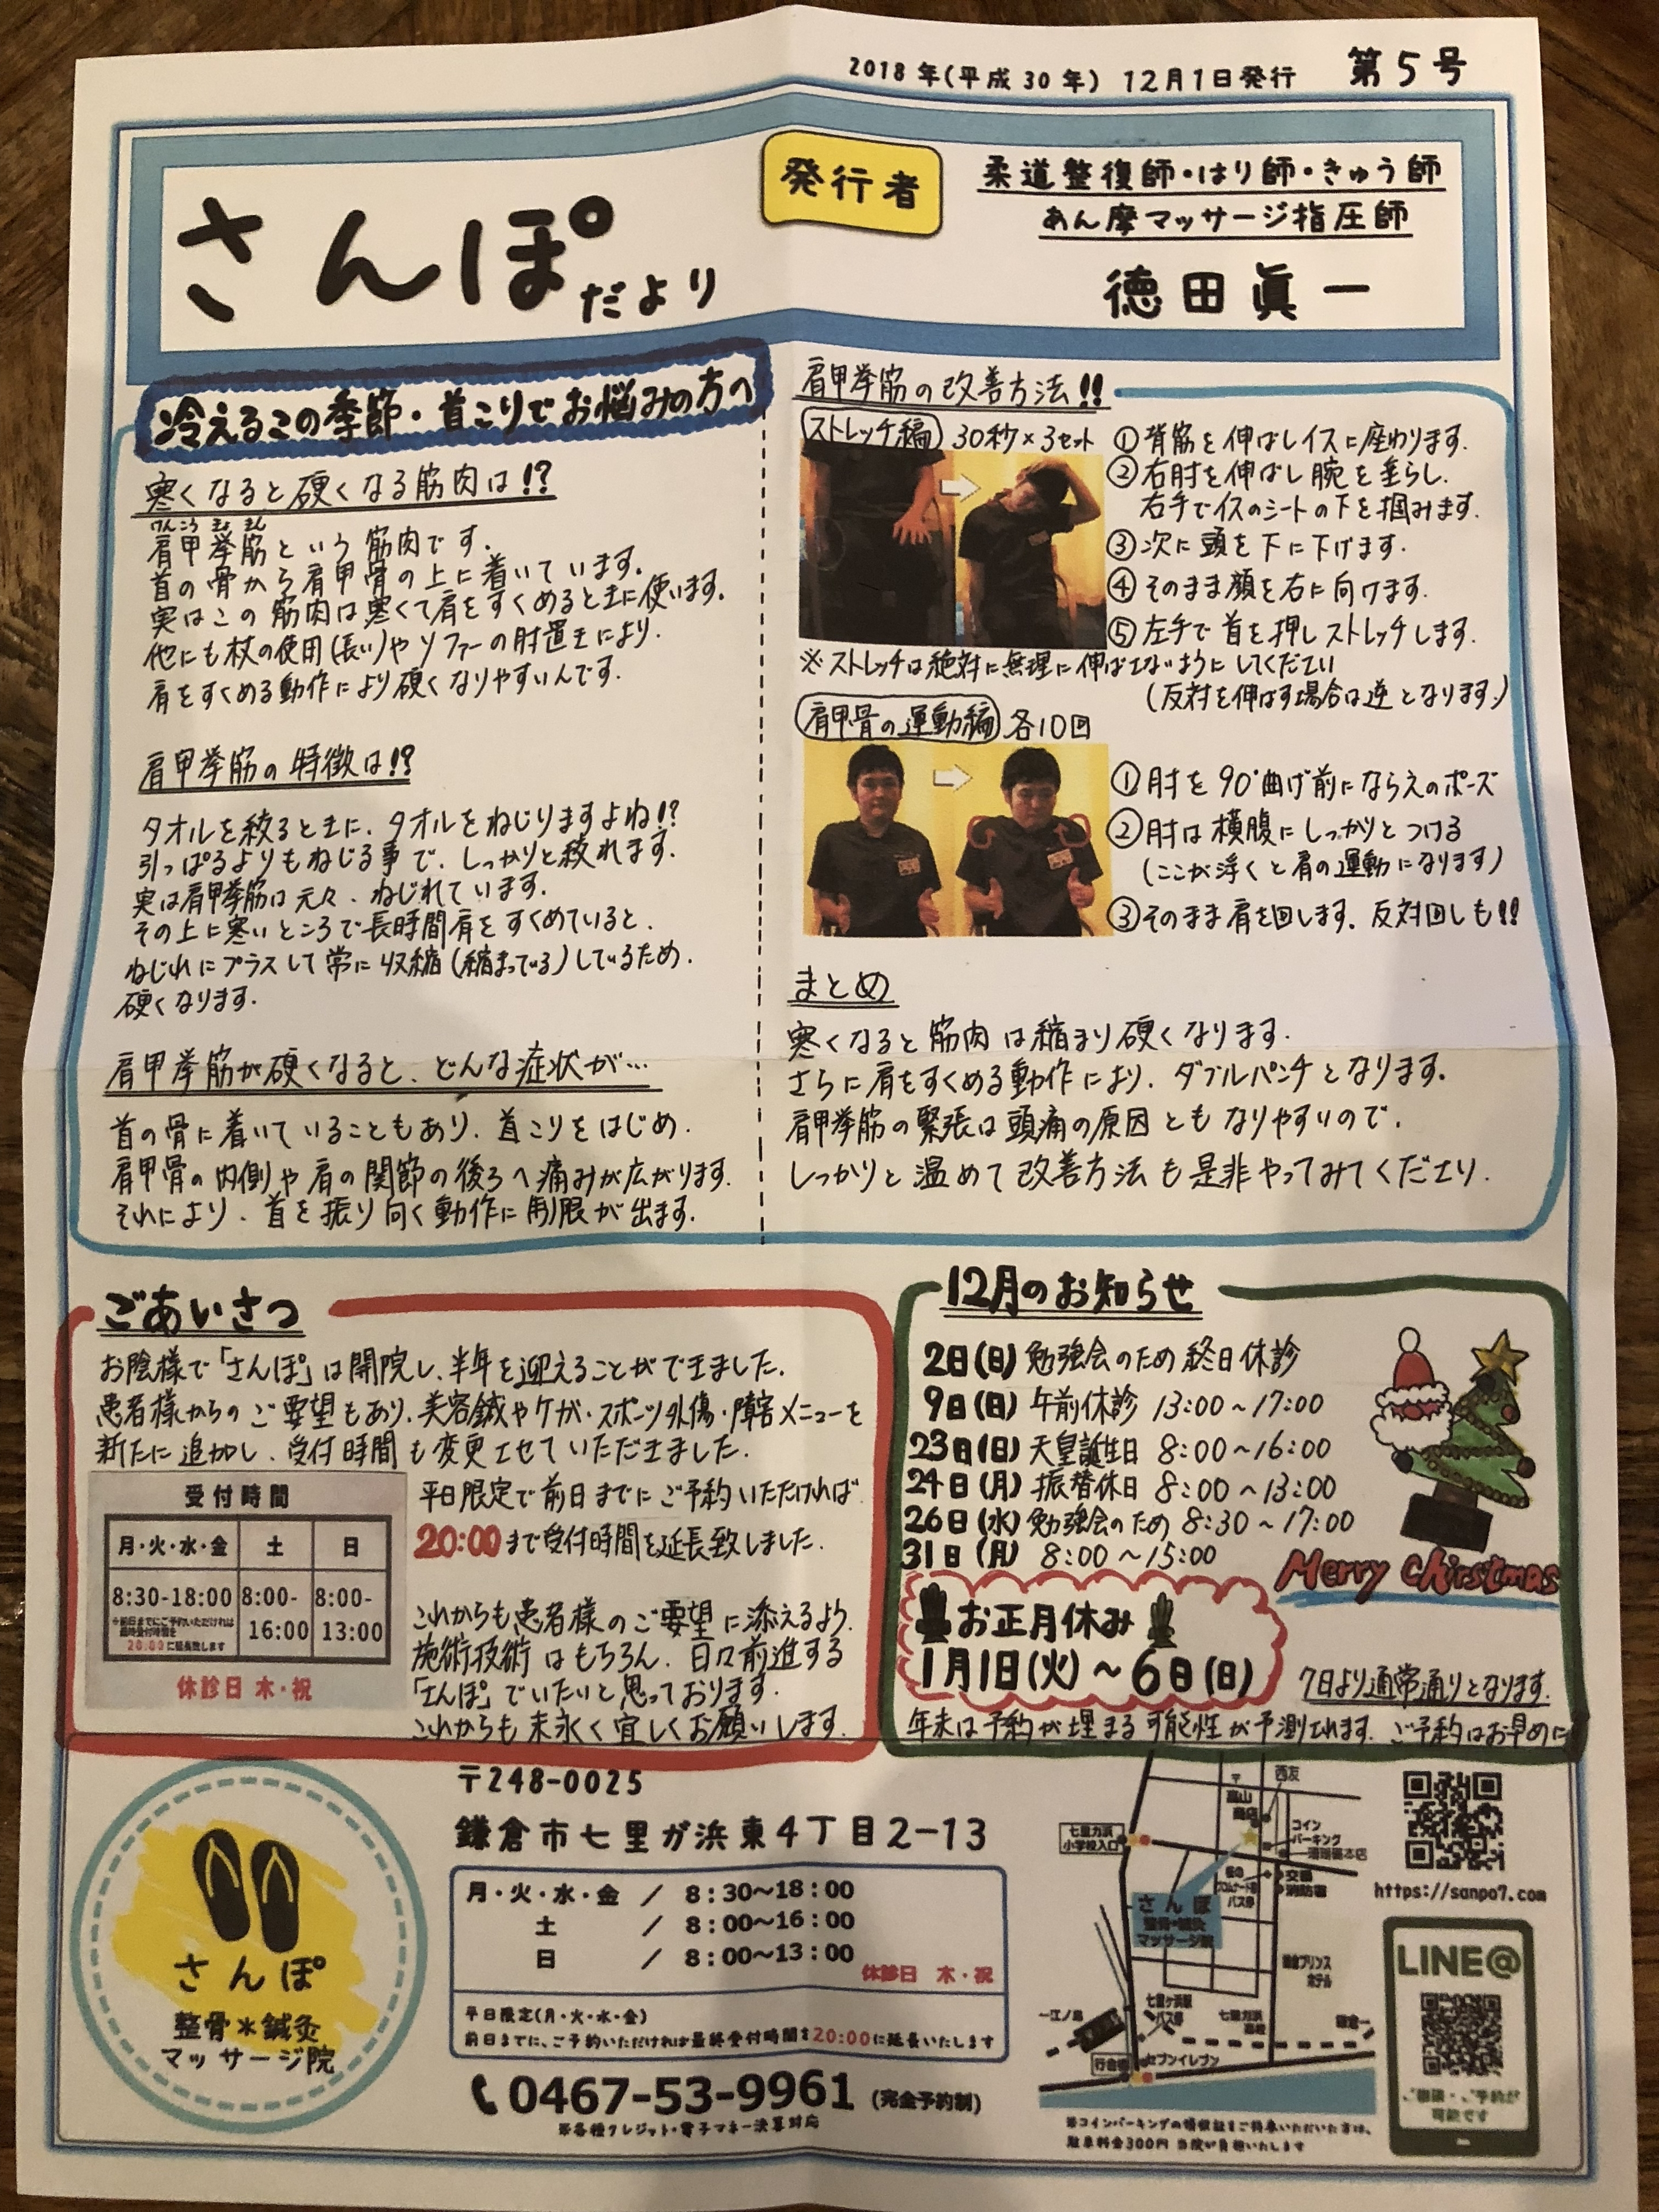 2018年(平成30年) 12月1日発行 第5号
さんぽだより
発行者
柔道整復師・はり師・きゅう師
あん摩マッサージ指圧師
徳田眞一
冷えるこの季節・首こりでお悩みの方へ
寒くなると硬くなる筋肉は!?
けんこうきょきん
肩甲挙筋という筋肉です。
首の骨から肩甲骨の上に着いています。
実はこの筋肉は寒くて肩をすくめるときに使います。
他にも杖の使用(長い)やソファーの肘置きにより、
肩をすくめる動作により硬くなりやすいんです。
肩甲挙筋の特徴は!?
タオルを絞るときに、タオルをねじりますよね!?
引っぱるよりもねじる事で、しっかりと絞れます。
実は肩甲挙筋は元々、ねじれています。
その上に寒いところで長時間肩をすくめていると、
ねじれにプラスして常に収縮(縮まってる)しているため、
硬くなります。
肩甲挙筋が硬くなると、どんな症状が…
首の骨に着いていることもあり、首こりをはじめ、
肩甲骨の内側や肩の関節の後ろへ痛みが広がります。
それにより、首を振り向く動作に制限が出ます。
肩甲挙筋の改善方法!!
ストレッチ編 30秒×3セット
①背筋を伸ばしイスに座わります。
②右肘を伸ばし腕を垂らし、
右手でイスのシートの下を掴みます。
③次に頭を下に下げます。
④そのまま顔を右に向けます。
⑤左手で首を押しストレッチします。
※ストレッチは絶対に無理に伸ばさないようにしてください
(反対を伸ばす場合は逆となります。)
肩甲骨の運動編 各10回
①肘を90°曲げ前にならえのポーズ
②肘は横腹にしっかりとつける
(ここが浮くと肩の運動になります)
③そのまま肩を回します。反対回しも!!
まとめ
寒くなると筋肉は縮まり硬くなります。
さらに肩をすくめる動作により、ダブルパンチとなります。
肩甲挙筋の緊張は頭痛の原因ともなりやすいので、
しっかりと温めて改善方法も是非やってみてください。
ごあいさつ
お陰様で「さんぽ」は開院し、半年を迎えることができました。
患者様からのご要望もあり、美容鍼やケガ・スポーツ外傷・障害メニューを
新たに追加し、受付時間も変更させていただきました。
受付時間
月・火・水・金 土 日
8:30-18:00 8:00-16:00 8:00-13:00
※前日までにご予約いただければ
最終受付時間を
20:00に延長致します
休診日 木・祝
平日限定で前日までにご予約いただければ
20:00まで受付時間を延長致しました。
これからも患者様のご要望に添えるよう、
施術技術はもちろん、日々前進する
「さんぽ」でいたいと思っております。
これからも末永く宜しくお願いします。
12月のお知らせ
2日(日) 勉強会のため終日休診
9日(日) 午前休診 13:00~17:00
23日(日) 天皇誕生日 8:00~16:00
24日(月) 振替休日 8:00~13:00
26日(水) 勉強会のため 8:30~17:00
31日(月) 8:00~15:00
Merry Chirstmas
お正月休み
1月1日(火)~6日(日)
7日より通常通りとなります。
年末は予約が埋まる可能性が予測されます。ご予約はお早めに
さんぽ
整骨*鍼灸
マッサージ院
〒248-0025
鎌倉市七里が浜東4丁目2-13
月・火・水・金 / 8:30~18:00
土 / 8:00~16:00
日 / 8:00~13:00
休診日 木・祝
平日限定(月・火・水・金)
前日までに、ご予約いただければ最終受付時間を20:00に延長いたします
0467-53-9961 (完全予約制)
※各種クレジット・電子マネー決済対応
西友
高山
商店
七里ガ浜
小学校入口
コイン
パーキング
珊瑚礁本店
交番
消防署
バス停
さんぽ
整骨・鍼灸
マッサージ院
鎌倉プリンス
ホテル
七里ヶ浜駅
バス停
七里ガ浜
高校
←江ノ島
鎌倉→
行合橋
セブンイレブン
※コインパーキングの領収証をご持参いただいた方は、
駐車料金300円 当院が負担いたします
https://sanpo7.com
LINE@
ご相談・ご予約が
可能です